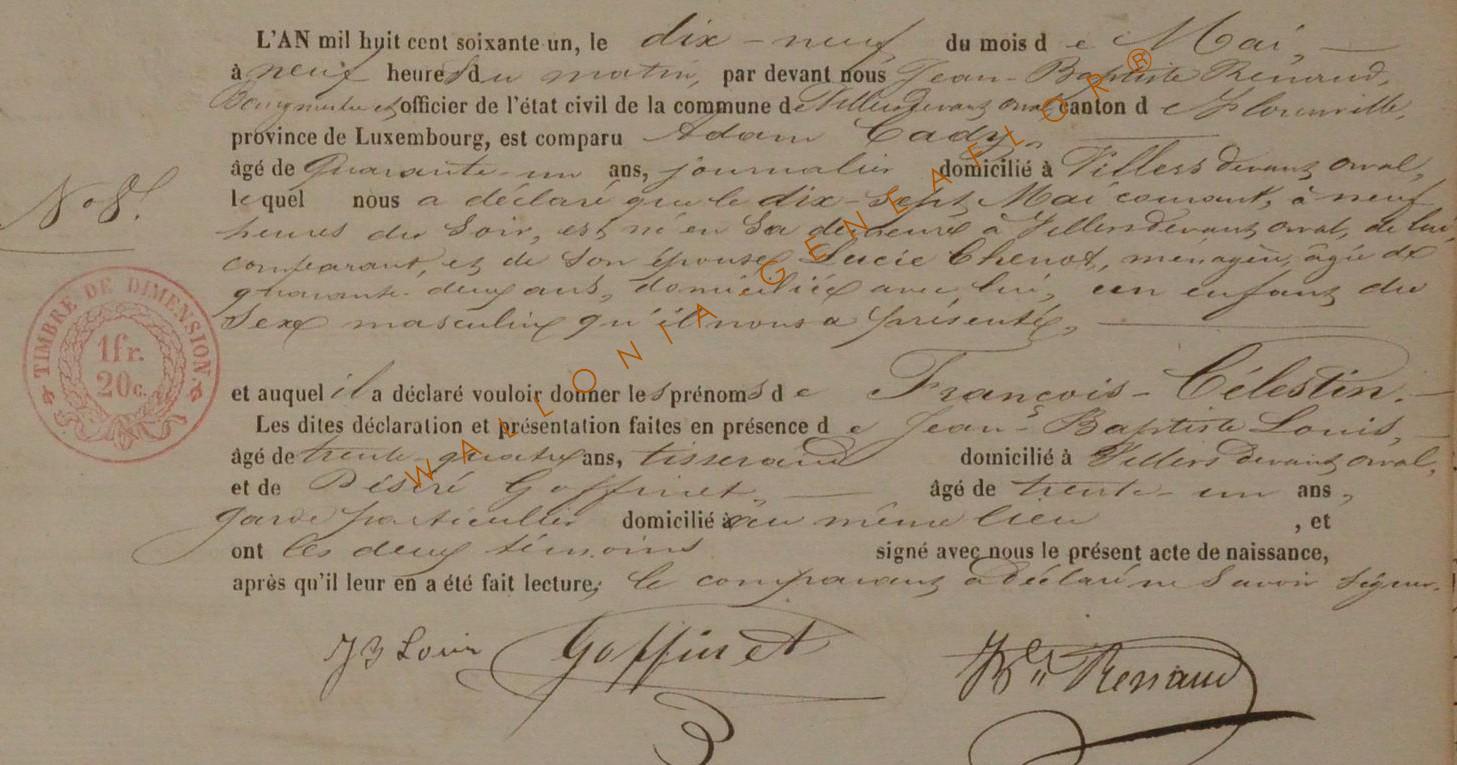 L'AN mil huit cent soixante un, le dix-neuf du mois de Mai,
à neuf heures du matin, par devant nous Jean-Baptiste Renaud,
Bourgmestre et officier de l'état civil de la commune de Villers devant orval canton de Florenville,
province de Luxembourg, est comparu Adam Cady,
âgé de Quarante-un ans, journalier domicilié à Villers devant orval,
lequel nous a déclaré que le dix-sept Mai courant, à neuf
N° 8.
heures du soir, est né en sa demeure à Villers devant orval, de lui
comparant, et de son épouse Lucie Chenot, ménagère, âgée de
quarante-deux ans, domiciliée avec lui, un enfant du
sexe masculin qu'il nous a présenté,
TIMBRE DE DIMENSION.
1 fr.
20 c.
et auquel il a déclaré vouloir donner les prénoms de François-Célestin.
Les dites déclaration et présentation faites en présence de Jean-Baptiste Louis,
âgé de trente-quatre ans, tisserand domicilié à Villers devant orval,
et de Désiré Goffinet, âgé de trente-un ans,
garde particulier domicilié au même lieu, et
ont les deux témoins signé avec nous le présent acte de naissance,
après qu'il leur en a été fait lecture; le comparant a déclaré ne savoir signer.
JB Louis Goffinet Renaud
WALLONIA GENEAFLOR®